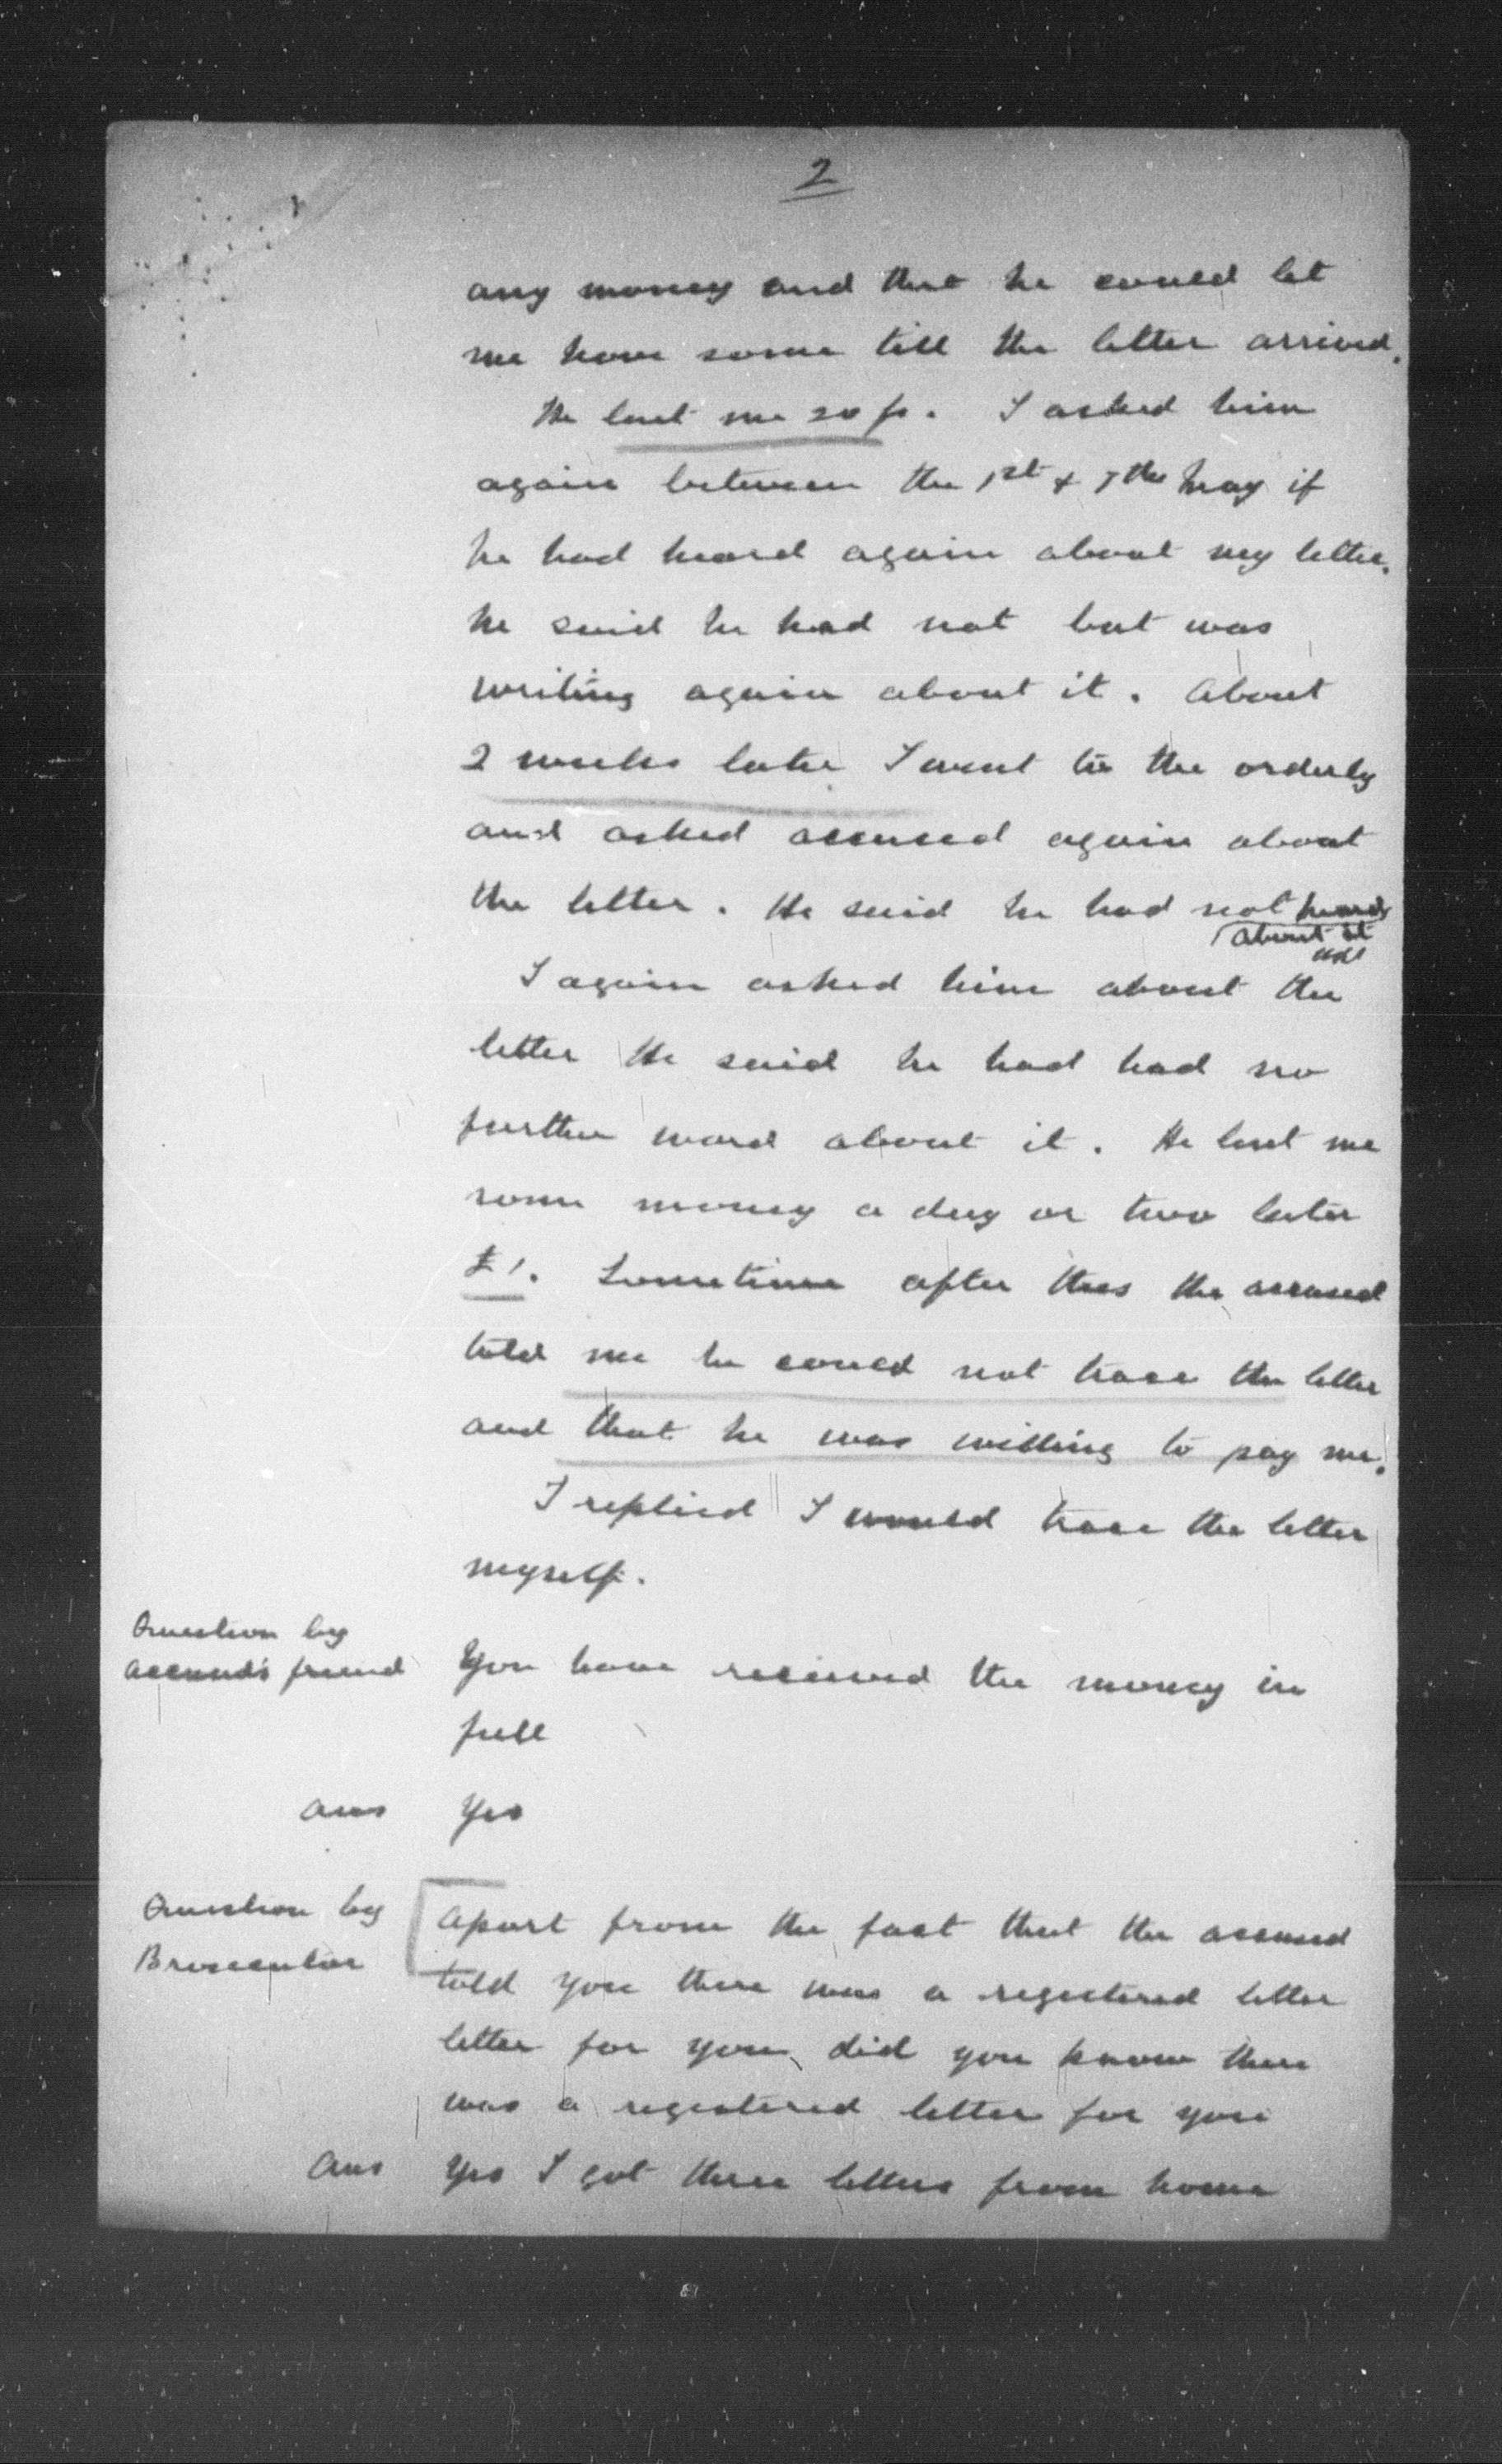 2
any money and that he could let
me have some till the letter arrived.
He lent me 20 fr. I asked him
again between the 1st & 7th May if
he had heard again about my letter.
he said he had not but was
writing again about it. About
2 weeks later I went to the orderly
and asked accused again about
the letter. He said he had not heard
about it
I again asked him about the
letter He said he had had no
further word about it. He lent me
some money a day or two later
£1. Sometime after this the accused
told me he could not trace the letter
and that he was willing to pay me.
I replied I would trace the letter
myself.
Question by
accused's friend
You have received the money in
full
Ans Yes
Question by
Prosecutor
Apart from the fact that the accused
told you there was a registered letter
letter for you, did you know there
was a registered letter for you
Ans Yes I got three letters from home